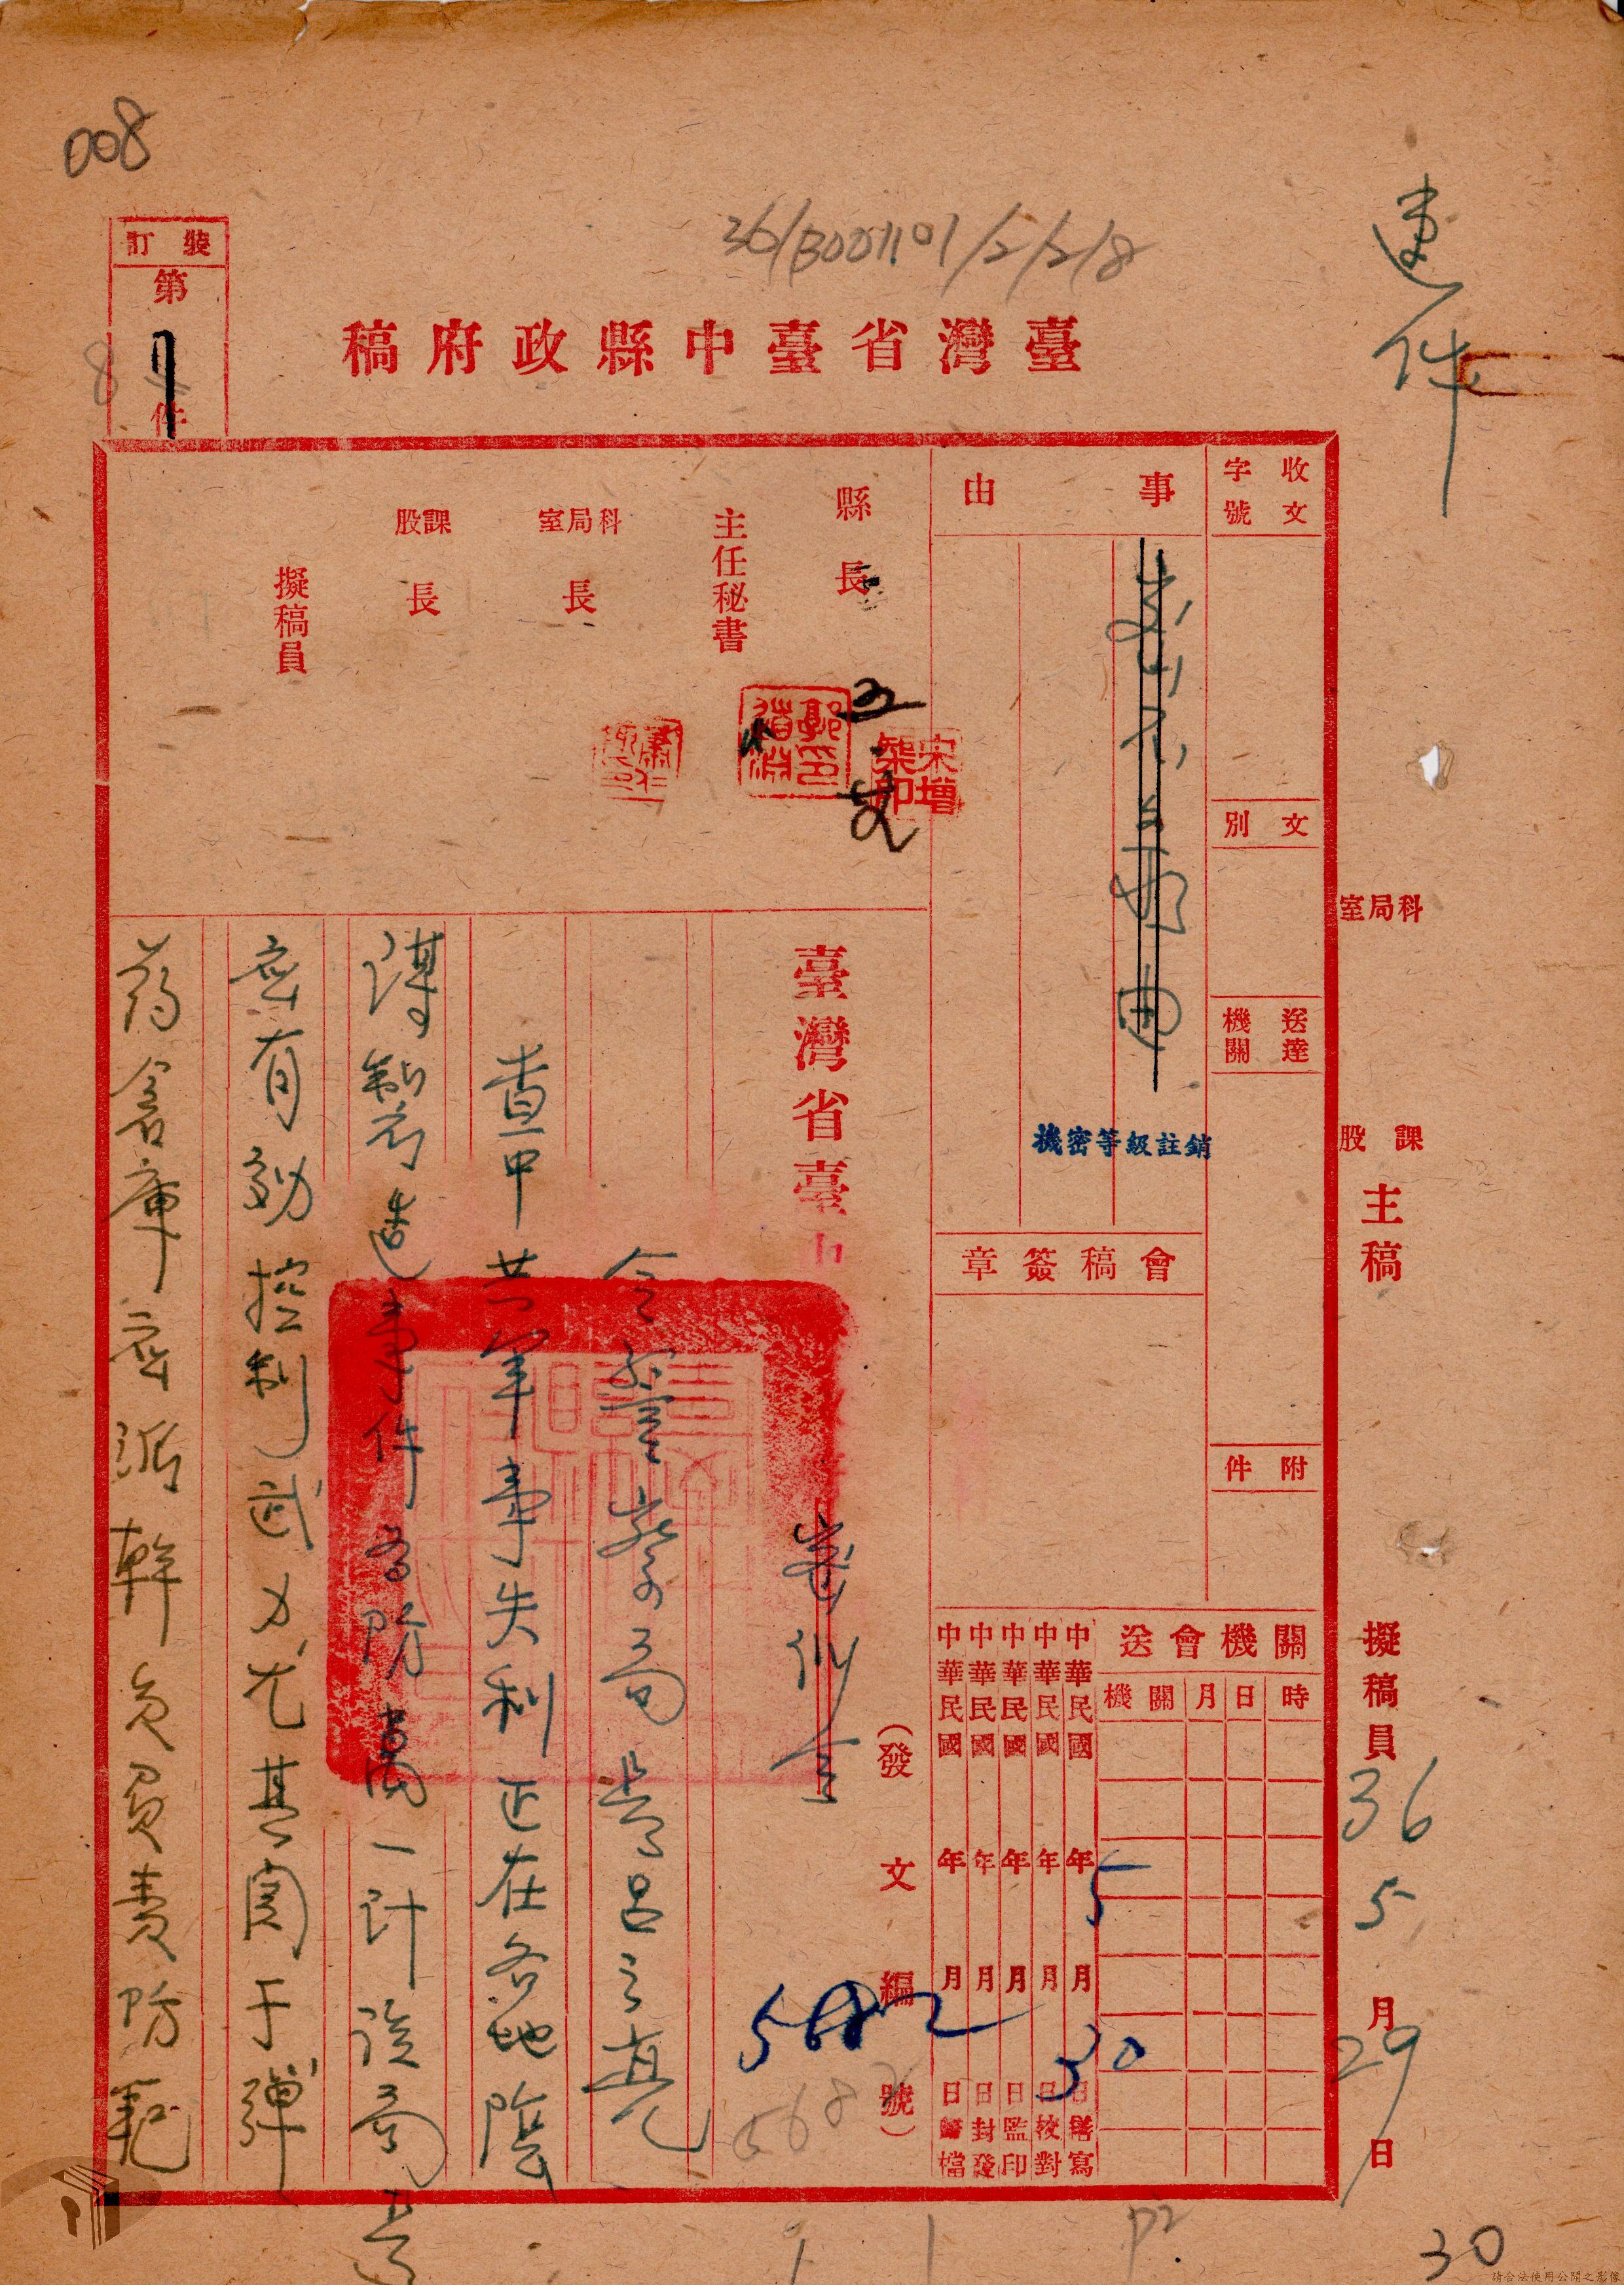 008
36/B001101/2/2/8
速件
裝訂
第
7
件
8
臺灣省臺中縣政府稿
收文
字號
文別
送達
機關
附件
事由
機密等級註銷
會稿簽章
縣長
主任秘書
科局室
長
課股
長
擬稿員
宋增榘印
五
科局室
課股
主稿
擬稿員
36
5
月
29
日
關機會送
時日月關機
中華民國年月日繕寫
中華民國年月日校對
中華民國年月日監印
中華民國年月日封發
中華民國年月日歸檔
5
30
(發文編號)
5682
5682
臺灣省臺中
令
警察局
長呂之亮
查中共軍事失利正在各地陰
謀製造事件為防萬一計該局亟
應有効控制武力尤其関于彈
葯倉庫應派幹員負責防範
P2
30
請合法使用公開之影像